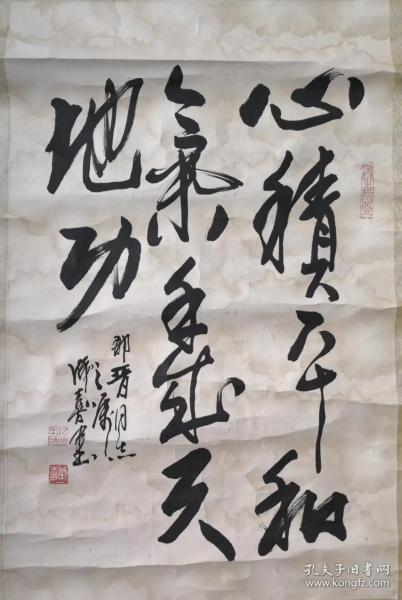 心積平和
氣手成天
地功
晋同志
之属
書
孔夫子旧书网
www.kongfz.com